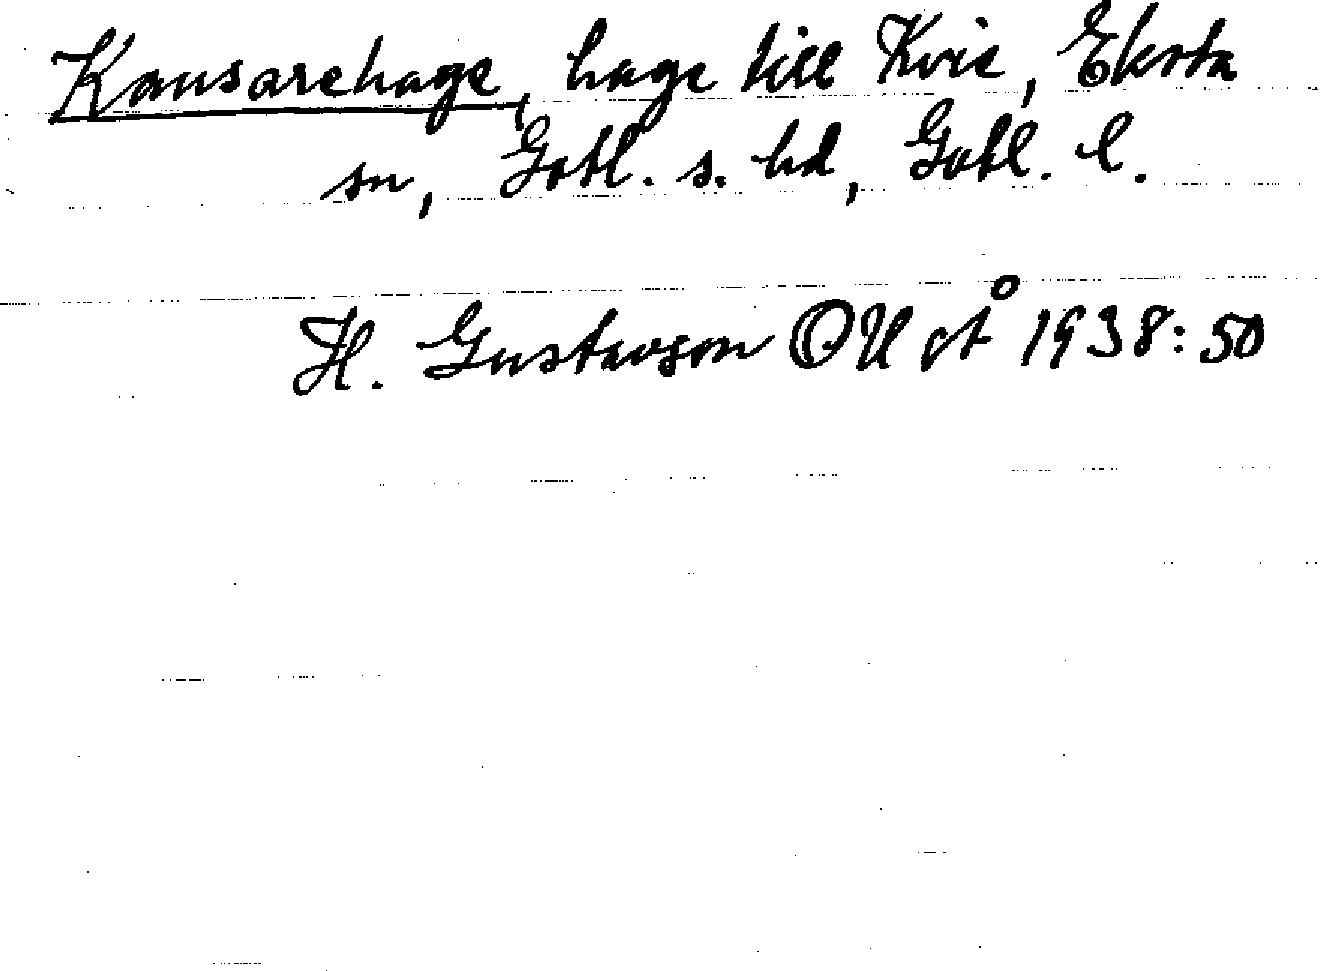 Kausarehage, hage till Kvie, Eksta
sn, Gotl. s. hd, Gotl. l.
H. Gustavson OUÅ 1938:50